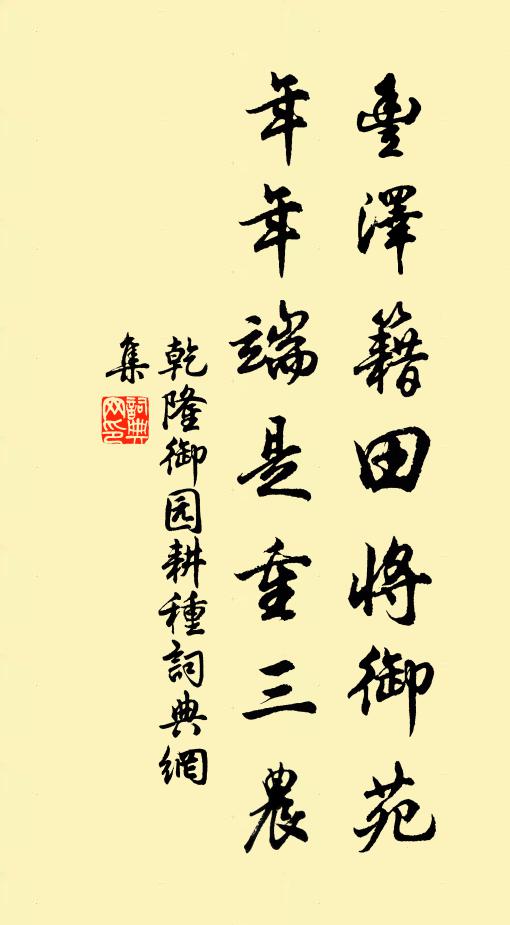 豊澤籍田將御苑
年年端是重三農
乾隆御园耕種詞典網
集
詞典
网印